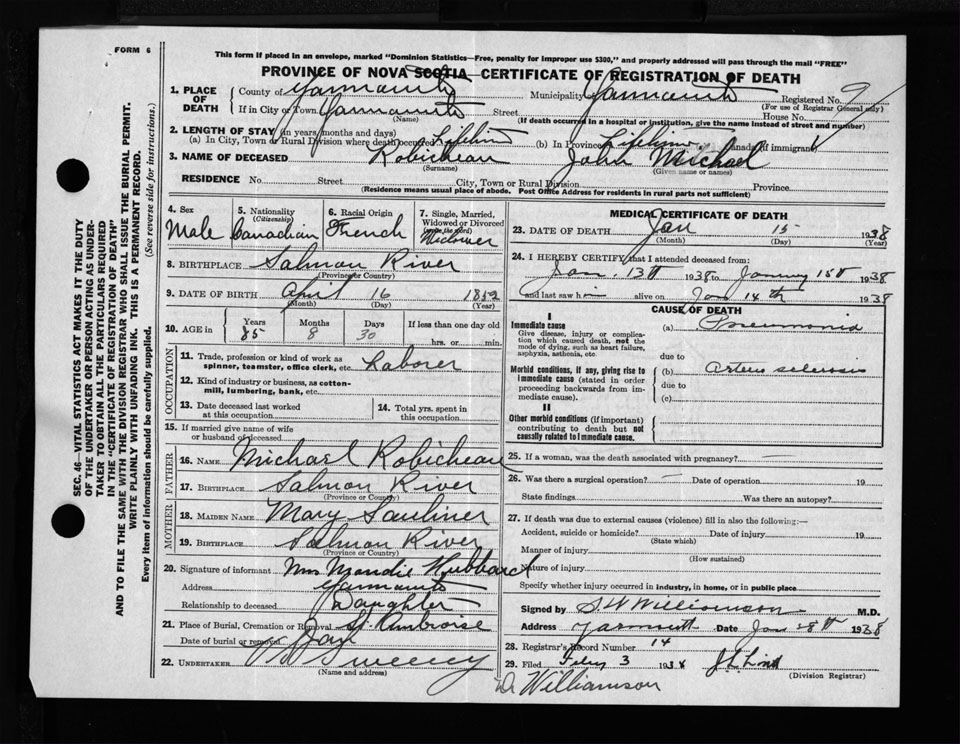 FORM 6
This form if placed in an envelope, marked "Dominion Statistics—Free, penalty for improper use $300," and properly addressed will pass through the mail "FREE"
PROVINCE OF NOVA SCOTIA—CERTIFICATE OF REGISTRATION OF DEATH
1. PLACE OF DEATH
County of Yarmouth Municipality of Yarmouth Registered No. 9
(For use of Registrar General only)
If in City or Town Yarmouth Street House No.
(Name) (If death occurred in a hospital or institution, give the name instead of street and number)
2. LENGTH OF STAY (in years, months and days)
(a) In City, Town or Rural Division where death occurred Lifetime (b) In Province Lifetime Canada if immigrant
3. NAME OF DECEASED Robicheau John Michael
(Surname) (Given name or names)
RESIDENCE No. Street City, Town or Rural Division Province
(Residence means usual place of abode. Post Office Address for residents in rural parts not sufficient)
4. Sex
Male
5. Nationality
(Citizenship)
Canadian
6. Racial Origin
French
7. Single, Married, Widowed or Divorced
(write the word)
Widower
8. BIRTHPLACE Salmon River
(Province or County)
9. DATE OF BIRTH April 16 1852
(Month) (Day) (Year)
10. AGE in
Years Months Days If less than one day old
85 8 30 hrs. or min.
OCCUPATION
11. Trade, profession or kind of work as spinner, teamster, office clerk, etc. Laborer
12. Kind of industry or business, as cotton-mill, lumbering, bank, etc.
13. Date deceased last worked at this occupation
14. Total yrs. spent in this occupation
15. If married give name of wife or husband of deceased
FATHER
16. NAME Michael Robicheau
17. BIRTHPLACE Salmon River
(Province or County)
MOTHER
18. MAIDEN NAME Mary Saulnier
19. BIRTHPLACE Salmon River
(Province or County)
20. Signature of informant Mrs Mandie Hubbard
Address Yarmouth
Relationship to deceased Daughter
21. Place of Burial, Cremation or Removal St. Ambroise
Date of burial or removal
22. UNDERTAKER Sweeney
(Name and address)
MEDICAL CERTIFICATE OF DEATH
23. DATE OF DEATH Jan 15 1938
(Month) (Day) (Year)
24. I HEREBY CERTIFY that I attended deceased from:
Jan. 13th 1938 to January 15th 1938
and last saw him alive on Jan 14th 1938
CAUSE OF DEATH
I
Immediate cause
Give disease, injury or complication which caused death, not the mode of dying, such as heart failure, asphyxia, asthenia, etc.
(a) Pneumonia
due to
Morbid conditions, if any, giving rise to immediate cause (stated in order proceeding backwards from immediate cause).
(b) Arterio sclerosis
due to
(c)
II
Other morbid conditions (if important) contributing to death but not causally related to immediate cause.
25. If a woman, was the death associated with pregnancy?
26. Was there a surgical operation? Date of operation 19
State findings Was there an autopsy?
27. If death was due to external causes (violence) fill in also the following:—
Accident, suicide or homicide? Date of injury 19
(State which)
Manner of injury
(How sustained)
Nature of injury
Specify whether injury occurred in industry, in home, or in public place
Signed by S W Williamson M.D.
Address Yarmouth Date Jan 28th 1938
28. Registrar's Record Number 14
29. Filed Feby 3 1938
(Division Registrar)
Dr Williamson
SEC. 46—VITAL STATISTICS ACT MAKES IT THE DUTY OF THE UNDERTAKER OR PERSON ACTING AS UNDERTAKER TO OBTAIN ALL THE PARTICULARS REQUIRED IN THE "CERTIFICATE OF REGISTRATION OF DEATH" AND TO FILE THE SAME WITH THE DIVISION REGISTRAR WHO SHALL ISSUE THE BURIAL PERMIT.
WRITE PLAINLY WITH UNFADING INK. THIS IS A PERMANENT RECORD.
Every item of information should be carefully supplied. (See reverse side for instructions.)